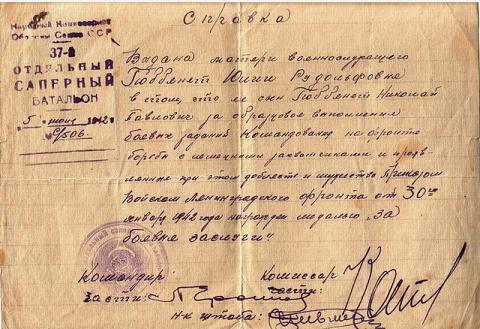 Справка
Народный Комиссариат
Обороны Союза ССР
37-й
ОТДЕЛЬНЫЙ
САПЕРНЫЙ
БАТАЛЬОН
"5" июня 1942 г.
с/506.
Выдана матери военнослужащего
Юлии Рудольфовне
в том, что ее сын Николай
Павлович за образцовое выполнение
боевых заданий Командования на фронте
борьбы с немецкими захватчиками и прояв-
ленные при этом доблесть и мужество Приказом
Войскам Ленинградского фронта от 30го
января 1942 года награжден медалью "За
боевые заслуги".
Командир
части:
Комиссар
части:
н-к штаба: